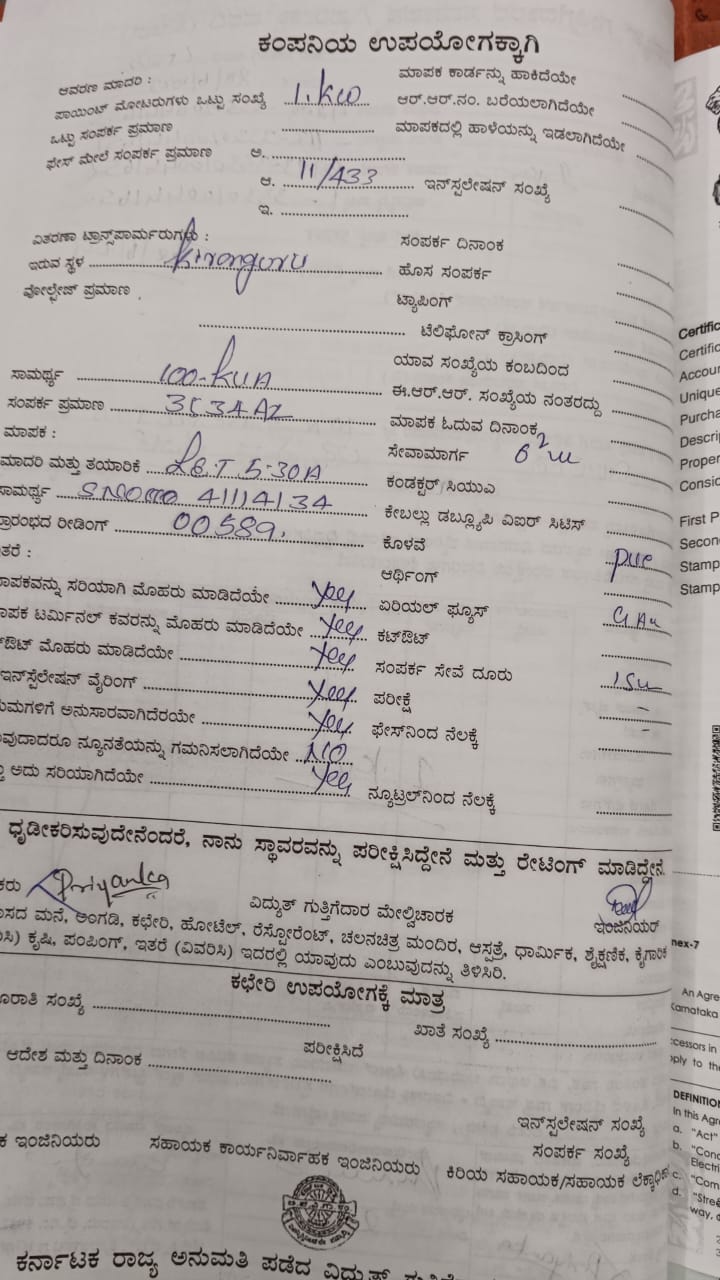 ಕಂಪನಿಯ ಉಪಯೋಗಕ್ಕಾಗಿ
ಆವರಣ ಮಾದರಿ :
ಮಾಪಕ ಕಾರ್ಡನ್ನು ಹಾಕಿದೆಯೇ
ಪಾಯಿಂಟ್ ಮೋಟರುಗಳು ಒಟ್ಟು ಸಂಖ್ಯೆ 1.KW ಆರ್.ಆರ್.ನಂ. ಬರೆಯಲಾಗಿದೆಯೇ
ಒಟ್ಟು ಸಂಪರ್ಕ ಪ್ರಮಾಣ ಮಾಪಕದಲ್ಲಿ ಹಾಳೆಯನ್ನು ಇಡಲಾಗಿದೆಯೇ
ಫೇಸ್ ಮೇಲೆ ಸಂಪರ್ಕ ಪ್ರಮಾಣ ಅ.
ಆ. 11/433 ಇನ್‌ಸ್ಪಲೇಷನ್ ಸಂಖ್ಯೆ
ಇ.
ವಿತರಣಾ ಟ್ರಾನ್ಸ್‌ಪಾರ್ಮರುಗಳು : ಸಂಪರ್ಕ ದಿನಾಂಕ
ಇರುವ ಸ್ಥಳ Kiranguru ಹೊಸ ಸಂಪರ್ಕ
ವೋಲ್ಟೇಜ್ ಪ್ರಮಾಣ ಟ್ಯಾಪಿಂಗ್
ಟೆಲಿಫೋನ್ ಕ್ರಾಸಿಂಗ್
ಯಾವ ಸಂಖ್ಯೆಯ ಕಂಬದಿಂದ
ಸಾಮರ್ಥ್ಯ 100-KVA ಈ.ಆರ್.ಆರ್. ಸಂಖ್ಯೆಯ ನಂತರದ್ದು
ಸಂಪರ್ಕ ಪ್ರಮಾಣ ಮಾಪಕ ಓದುವ ದಿನಾಂಕ
ಮಾಪಕ : ಸೇವಾಮಾರ್ಗ
ಮಾದರಿ ಮತ್ತು ತಯಾರಿಕೆ L&T 5-30A ಕಂಡಕ್ಟರ್ ಸಿಯುಎ
ಸಾಮರ್ಥ್ಯ 41114134 ಕೇಬಲ್ಲು ಡಬ್ಲ್ಯೂಪಿ ವಿಐರ್ ಸಿಟಿಸ್
ಪ್ರಾರಂಭದ ರೀಡಿಂಗ್ 00589 ಕೊಳವೆ PVC
ಇತರೆ : ಆರ್ಥಿಂಗ್
ಮಾಪಕವನ್ನು ಸರಿಯಾಗಿ ಮೊಹರು ಮಾಡಿದೆಯೇ Yes ಏರಿಯಲ್ ಫ್ಯೂಸ್
ಮಾಪಕ ಟರ್ಮಿನಲ್ ಕವರನ್ನು ಮೊಹರು ಮಾಡಿದೆಯೇ Yes ಕಟ್‌ಔಟ್
ಕಟ್‌ಔಟ್ ಮೊಹರು ಮಾಡಿದೆಯೇ Yes ಸಂಪರ್ಕ ಸೇವೆ ದೂರು
ಇನ್‌ಸ್ಟೆಲೇಷನ್ ವೈರಿಂಗ್ Yes ಪರೀಕ್ಷೆ -
ಅನುಸಾರವಾಗಿದೆರಯೇ Yes ಫೇಸ್‌ನಿಂದ ನೆಲಕ್ಕೆ -
ನ್ಯೂನತೆಯನ್ನು ಗಮನಿಸಲಾಗಿದೆಯೇ NO
ಅದು ಸರಿಯಾಗಿದೆಯೇ Yes ನ್ಯೂಟ್ರಲ್‌ನಿಂದ ನೆಲಕ್ಕೆ
ಧೃಡೀಕರಿಸುವುದೇನೆಂದರೆ, ನಾನು ಸ್ಥಾವರವನ್ನು ಪರೀಕ್ಷಿಸಿದ್ದೇನೆ ಮತ್ತು ರೇಟಿಂಗ್ ಮಾಡಿದ್ದೇನೆ.
Priyanka ವಿದ್ಯುತ್ ಗುತ್ತಿಗೆದಾರ ಮೇಲ್ವಿಚಾರಕ ಇಂಜಿನಿಯರ್
ಮನೆ, ಅಂಗಡಿ, ಕಛೇರಿ, ಹೋಟೆಲ್, ರೆಸ್ಟೋರೆಂಟ್, ಚಲನಚಿತ್ರ ಮಂದಿರ, ಆಸ್ಪತ್ರೆ, ಧಾರ್ಮಿಕ, ಶೈಕ್ಷಣಿಕ, ಕೈಗಾರಿಕ
ಕೃಷಿ, ಪಂಪಿಂಗ್, ಇತರೆ (ವಿವರಿಸಿ) ಇದರಲ್ಲಿ ಯಾವುದು ಎಂಬುವುದನ್ನು ತಿಳಿಸಿರಿ.
ಕಛೇರಿ ಉಪಯೋಗಕ್ಕೆ ಮಾತ್ರ
ಸಂಖ್ಯೆ ಖಾತೆ ಸಂಖ್ಯೆ
ಪರೀಕ್ಷಿಸಿದೆ
ಆದೇಶ ಮತ್ತು ದಿನಾಂಕ
ಇನ್‌ಸ್ಟಲೇಷನ್ ಸಂಖ್ಯೆ
ಸಂಪರ್ಕ ಸಂಖ್ಯೆ
ಇಂಜಿನಿಯರು ಸಹಾಯಕ ಕಾರ್ಯನಿರ್ವಾಹಕ ಇಂಜಿನಿಯರು ಕಿರಿಯ ಸಹಾಯಕ/ಸಹಾಯಕ ಲೆಕ್ಕಾಧಿಕ
ಕರ್ನಾಟಕ ರಾಜ್ಯ ಅನುಮತಿ ಪಡೆದ ವಿದ್ಯುತ್
Certific
Certific
Accour
Unique
Purcha
Descrip
Proper
Consid
First P
Secon
Stamp
Stamp
nex-7
An Agre
Karnataka
ccessors in
pply to the
DEFINITION
In this Agre
a. "Act"
b. "Cond
Electri
c. "Com
d. "Stree
way,